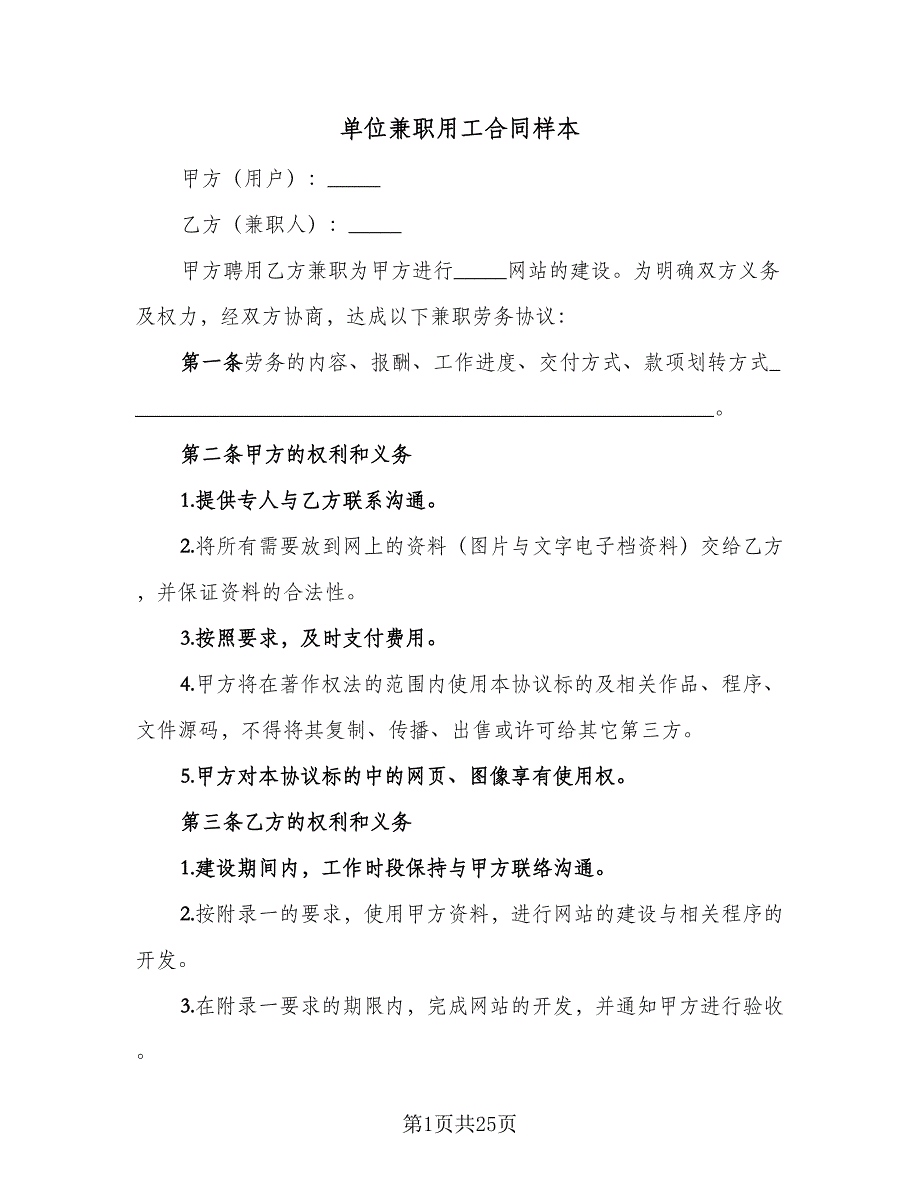 单位兼职用工合同样本
甲方（用户）：_____
乙方（兼职人）：_____
甲方聘用乙方兼职为甲方进行_____网站的建设。为明确双方义务
及权力，经双方协商，达成以下兼职劳务协议：
第一条劳务的内容、报酬、工作进度、交付方式、款项划转方式_
_______________________________________________________。
第二条甲方的权利和义务
1.提供专人与乙方联系沟通。
2.将所有需要放到网上的资料（图片与文字电子档资料）交给乙方
，并保证资料的合法性。
3.按照要求，及时支付费用。
4.甲方将在著作权法的范围内使用本协议标的及相关作品、程序、
文件源码，不得将其复制、传播、出售或许可给其它第三方。
5.甲方对本协议标的中的网页、图像享有使用权。
第三条乙方的权利和义务
1.建设期间内，工作时段保持与甲方联络沟通。
2.按附录一的要求，使用甲方资料，进行网站的建设与相关程序的
开发。
3.在附录一要求的期限内，完成网站的开发，并通知甲方进行验收
。
第1页共25页